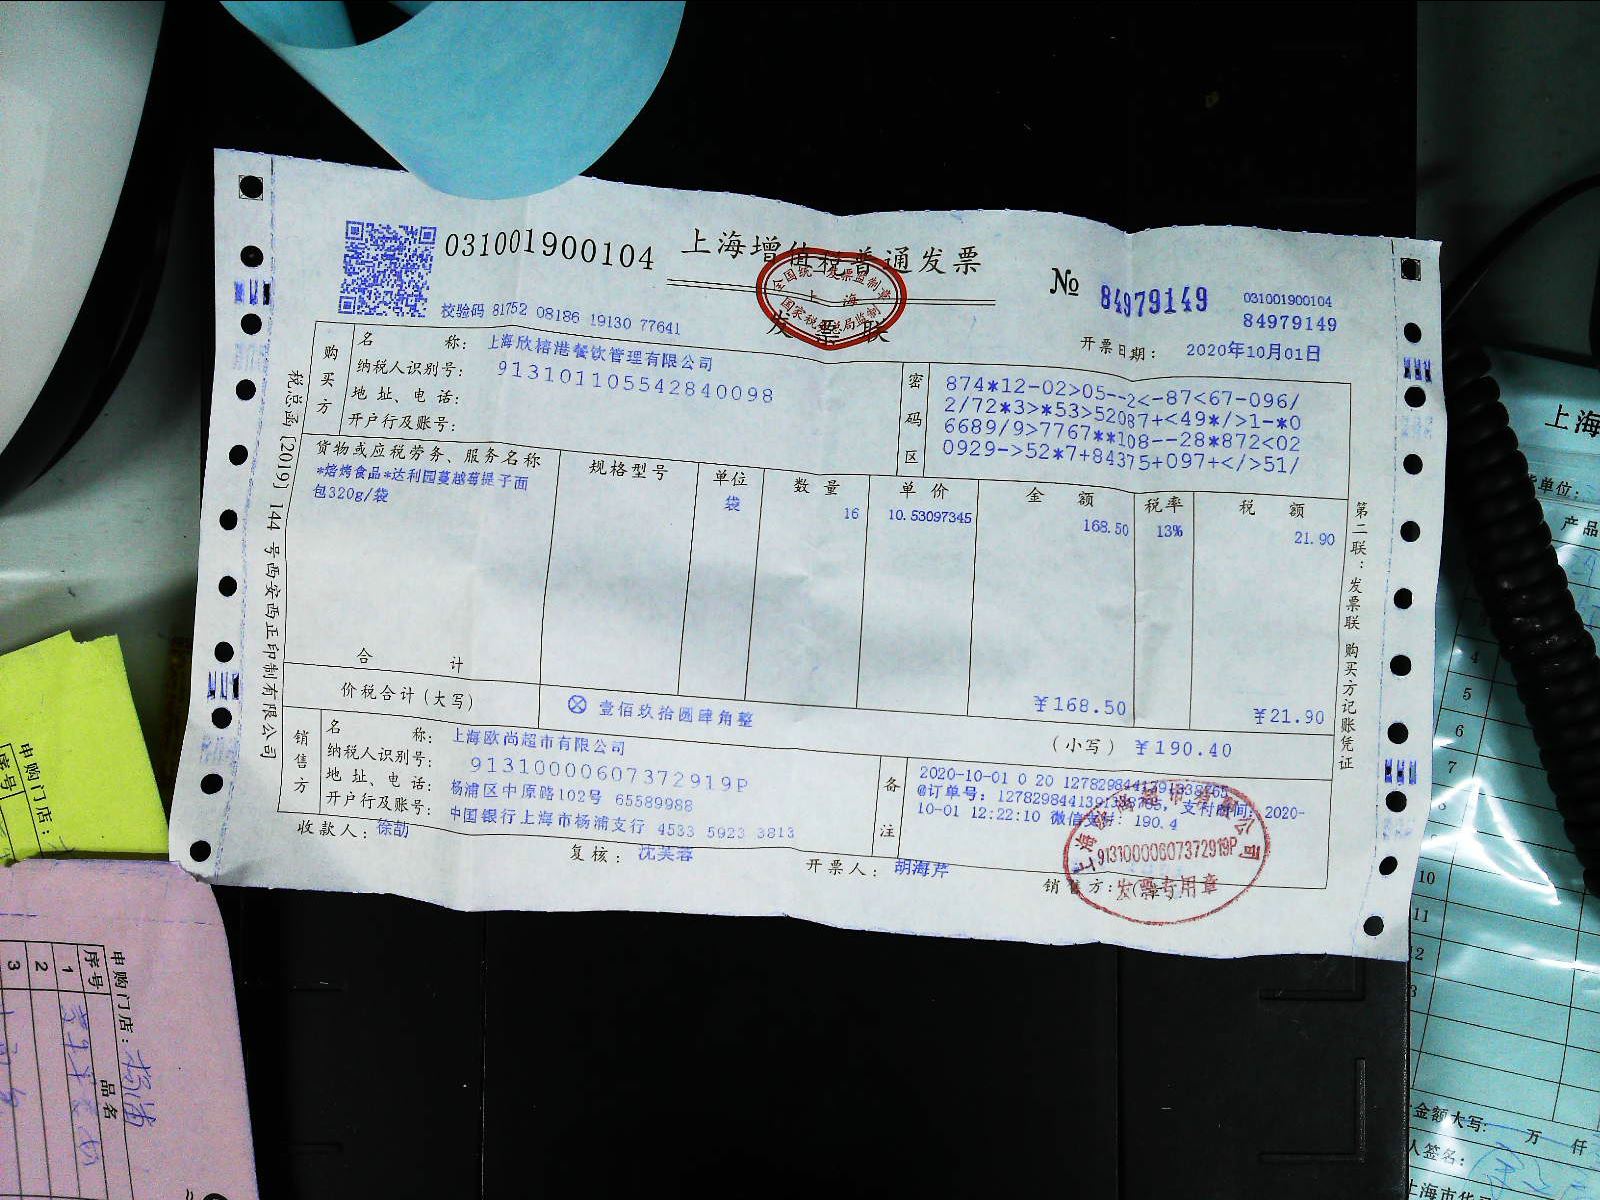 031001900104
上海增值税普通发票
全国统一发票监制章
上海
国家税务总局监制
发票联
№ 84979149
031001900104
84979149
校验码 81752 08186 19130 77641
开票日期： 2020年10月01日
购买方
名称： 上海欣榕港餐饮管理有限公司
纳税人识别号： 913101105542840098
地址、电话：
开户行及账号：
密码区
874*12-02>05--2<-87<67-096/
2/72*3>*53>52087+<49*/>1-*0
6689/9>7767**108--28*872<02
0929->52*7+84375+097+</>51/
货物或应税劳务、服务名称 规格型号 单位 数量 单价 金额 税率 税额
*焙烤食品*达利园蔓越莓提子面 袋 16 10.53097345 168.50 13% 21.90
包320g/袋
合计 ￥168.50 ￥21.90
价税合计（大写） ⊗ 壹佰玖拾圆肆角整 （小写）￥190.40
销售方
名称： 上海欧尚超市有限公司
纳税人识别号： 91310000607372919P
地址、电话： 杨浦区中原路102号 65589988
开户行及账号： 中国银行上海市杨浦支行 4533 5923 3813
备注
2020-10-01 0 20 1278298441391338765
@订单号: 1278298441391338765, 支付时间: 2020-
10-01 12:22:10 微信支付: 190.4
收款人： 徐勍
复核： 沈芙蓉
开票人： 胡海芹
销售方：（章）
91310000607372919P
发票专用章
税总函〔2019〕144号西安西正印制有限公司
第二联：发票联 购买方记账凭证
申购门店：
序号
申购门店：杨浦
序号 品名
1
2
3
上海
货单位：
产品
4
5
6
7
10
11
12
金额大写： 万 仟
人签名：
上海市华